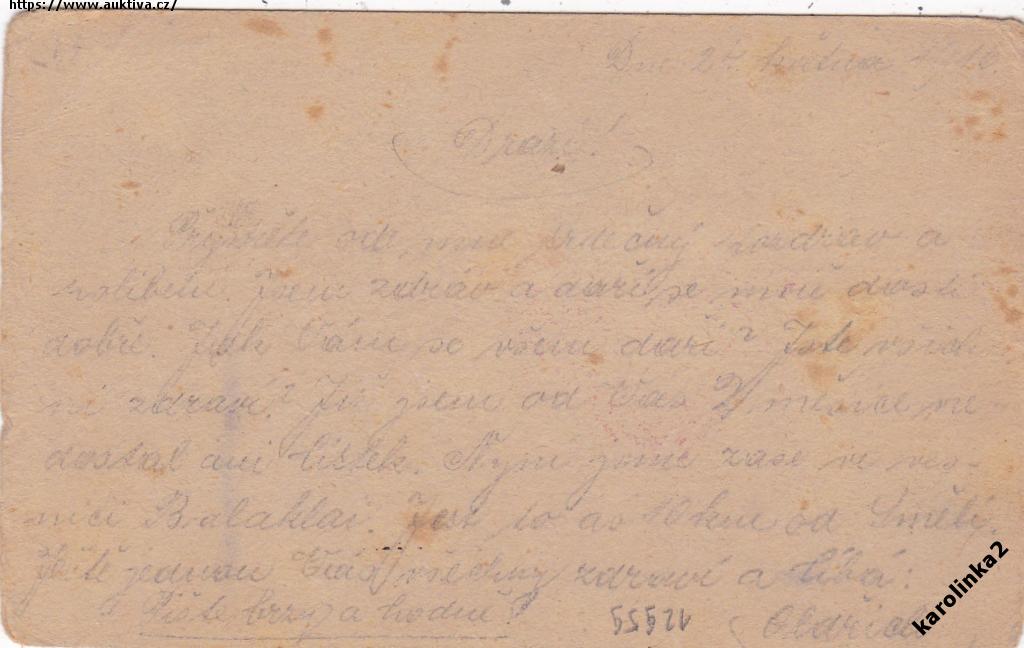 https://www.auktiva.cz/
Dne 24. května
Drazí!
Přijměte ode mne srdečný pozdrav a
políbení. Jsem zdráv a daří se mně dosti
dobře. Jak Vám se všem daří? Jste všich-
ni zdraví? Již jsem od Vás 2 měsíce ne-
dostal ani lístek. Nyní jsme zase ve ves-
nici Balaklai. Jest to as 10 km od Směli.
Ještě jednou Vás všechny zdraví a líbá:
Pište brzy a hodně!
Oldřich
12959
karolinka2